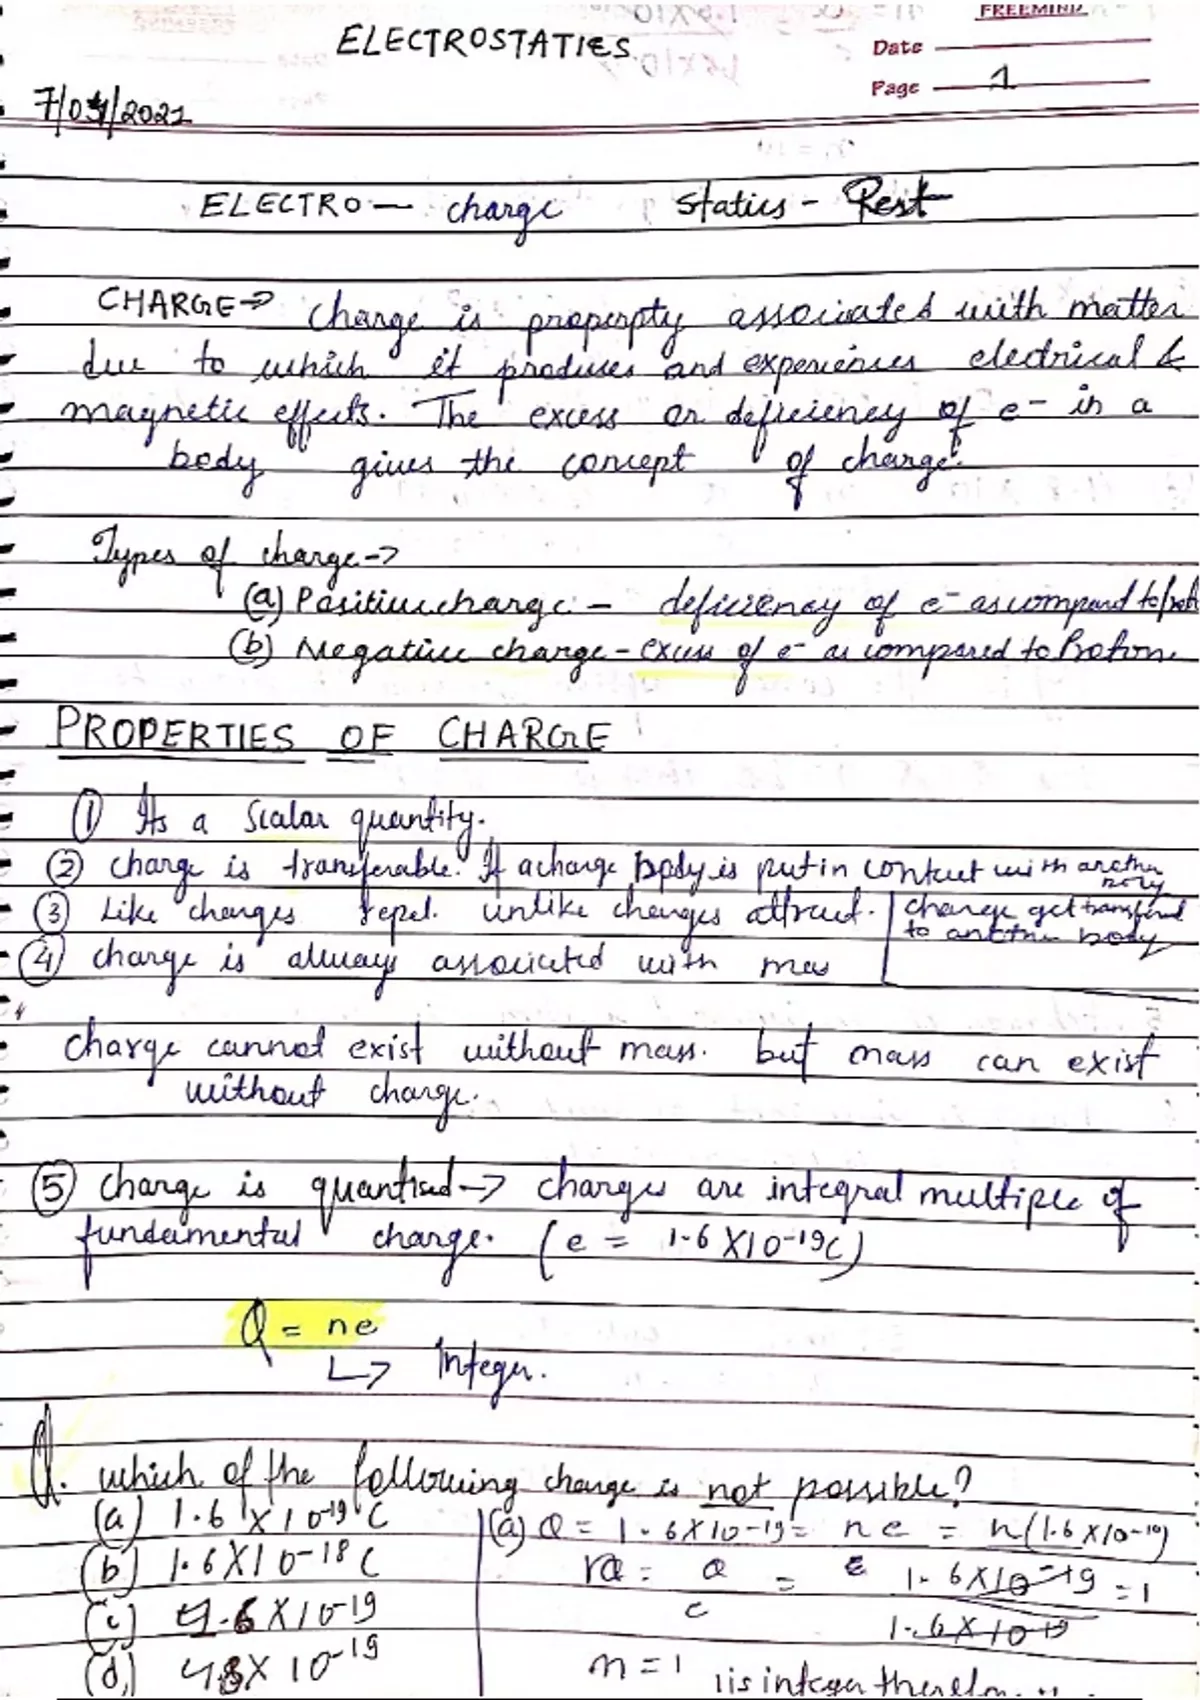 FREEMIND
ELECTROSTATICS
Date
Page 1
7/04/2021
ELECTRO - charge Statics - Rest
CHARGE⇒ Charge is properpty associated with matter
due to which it produces and experiences electrical &
magnetic effects. The excess or deficiency of e- in a
body gives the concept of charge.
Types of charge->
(a) Positive charge - deficiency of e- as compared to
(b) Negative charge - excess of e- as compared to Proton.
PROPERTIES OF CHARGE
① Its a Scalar quantity.
② charge is transferable. If a charge body is put in contact with another body
③ Like charges repel. unlike charges attract.
charge get transferred
to another body
④ charge is always associated with mas
charge cannot exist without mass. but mass can exist
without charge.
⑤ charge is quantised -> charges are integral multiple of
fundamental charge. (e = 1.6 X10-19C)
Q = ne
↳ Integer.
Q. which of the following charge is not possible?
(a) 1.6 X 10-19 C
(b) 1.6 X10-18 C
(c) X10-19
(d) 4.8X 10-19
(a) Q = 1.6X10-19 = ne = n(1.6 X10-19)
Q = 1.6X10-19 = 1
e 1.6X10-19
n = 1 1 is integer